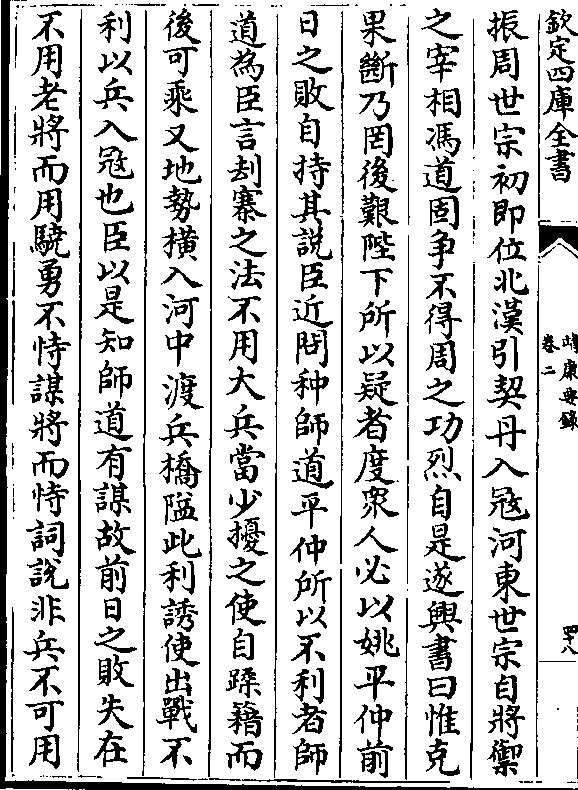 欽定四庫全書
靖康要錄
卷二
四十八
振周世宗初即位北漢引契丹入冦河東世宗自將禦
之宰相馮道固爭不得周之功烈自是遂興書曰惟克
果斷乃罔後艱陛下所以疑者度衆人必以姚平仲前
日之敗自持其說臣近問种師道平仲所以不利者師
道為臣言刦寨之法不用大兵當少擾之使自蹂籍而
後可乘又地勢橫入河中渡兵橋隘此利誘使出戰不
利以兵入冦也臣以是知師道有謀故前日之敗失在
不用老將而用驍勇不恃謀將而恃詞說非兵不可用